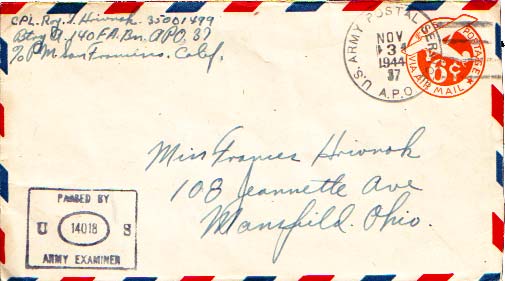 CPL. Roy. J. Hrivnak. 35001499
Btry A, 140 F.A. Bn. APO. 37
% P.M. San Francisco. Calif.
U.S. ARMY POSTAL SERVICE
NOV
3
1944
37
A.P.O.
POSTAGE
6¢
VIA AIR MAIL
Miss Frances Hrivnak
108 Jeannette Ave
Mansfield. Ohio.
PASSED BY
U 14018 S
ARMY EXAMINER